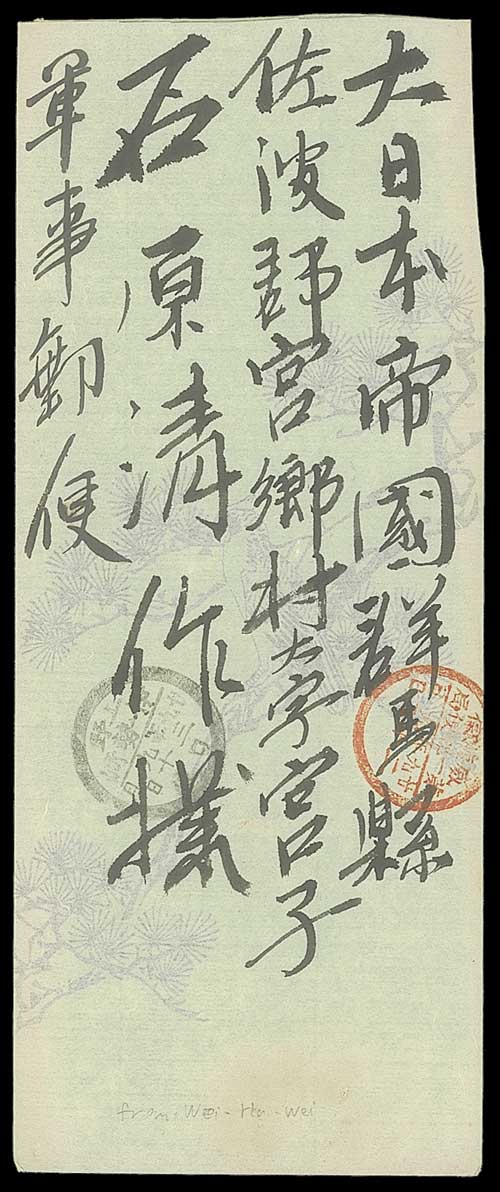 大日本帝國群馬縣
佐波郡宮郷村大字宮子
石原清作様
軍事郵便
from Wei-Hai-Wei